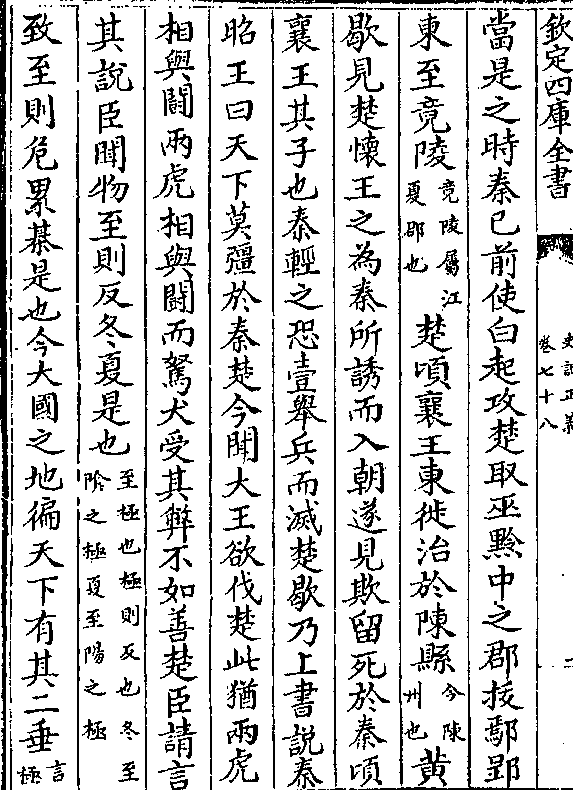 欽定四庫全書
史記正義
卷七十八
當是之時秦已前使白起攻楚取巫黔中之郡拔鄢郢
東至竟陵竟陵屬江夏郡也楚頃襄王東徙治於陳縣今陳州也黄
歇見楚懷王之為秦所誘而入朝遂見欺留死於秦頃
襄王其子也秦輕之恐壹舉兵而滅楚歇乃上書說秦
昭王曰天下莫彊於秦楚今聞大王欲伐楚此猶兩虎
相與鬭兩虎相與鬭而駑犬受其弊不如善楚臣請言
其說臣聞物至則反冬夏是也至極也極則反也冬至陰之極夏至陽之極
致至則危累棊是也今大國之地徧天下有其二垂言極